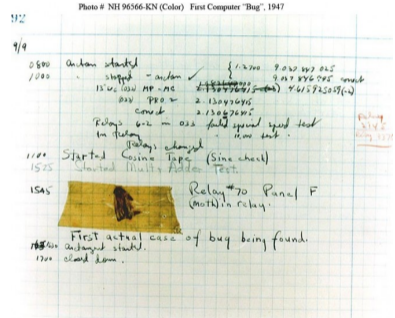 Photo # NH 96566-KN (Color) First Computer "Bug", 1947
92
9/9
0800 antan started
1000 " stopped - antan ✓ { 1.2700 9.037 847 025
9.037 846 995 correct
13"uc (032) MP - MC 4.615925059(-2)
(033) PRO 2 2.130476415
correct 2.130676415
Relays 6-2 in 033 failed special speed test
in relay " test.
Relays changed
1100 Started Cosine Tape (Sine check)
1525 Started Multi Adder Test.
1545 Relay #70 Panel F
(moth) in relay.
First actual case of bug being found.
antangent started.
1700 closed down.